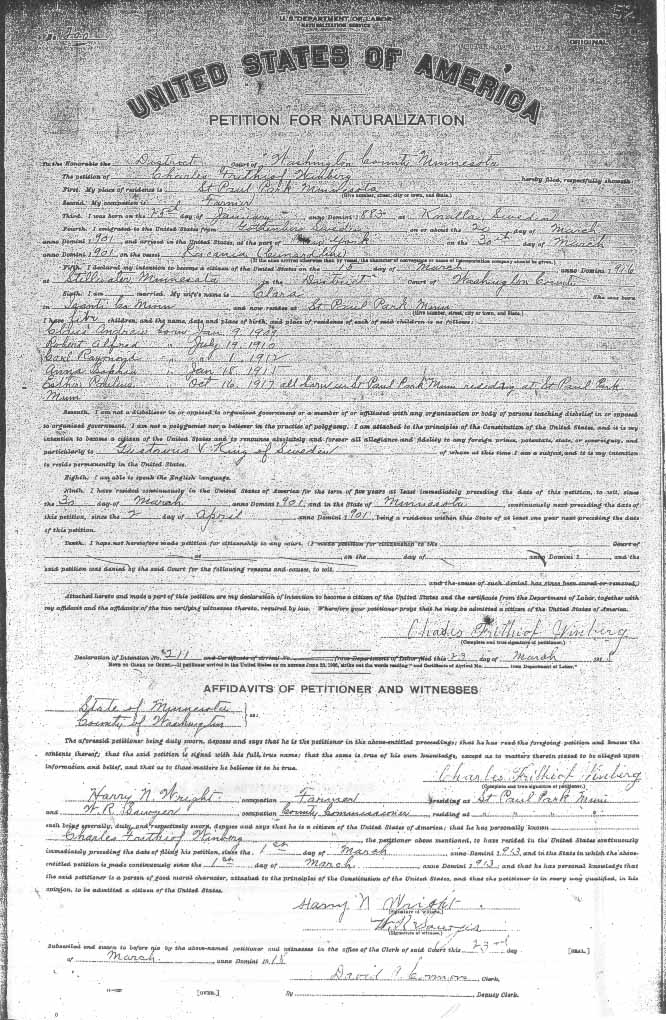 U. S. DEPARTMENT OF LABOR
NATURALIZATION SERVICE
No.
ORIGINAL
UNITED STATES OF AMERICA
PETITION FOR NATURALIZATION
To the Honorable the District Court of Washington County Minnesota
The petition of Charles Frithiof Winberg hereby filed, respectfully showeth:
First. My place of residence is St Paul Park Minnesota
(Give number, street, city or town, and State.)
Second. My occupation is Farmer
Third. I was born on the 15th day of January anno Domini 1 883 at Knulla, Sweden
Fourth. I emigrated to the United States from Sweden on or about the 20 day of March
anno Domini 1 901 and arrived in the United States, at the port of New York on the 30th day of March
anno Domini 1 901 on the vessel (Cunard line)
(If the alien arrived otherwise than by vessel, the character of conveyance or name of transportation company should be given.)
Fifth. I declared my intention to become a citizen of the United States on the 15 day of March anno Domini 1 916
at Stillwater Minnesota in the District Court of Washington County
Sixth. I am married. My wife's name is Clara She was born
in Isanti Co Minn and now resides at St Paul Park Minn
(Give number, street, city or town, and State.)
I have five children, and the name, date and place of birth, and place of residence of each of said children is as follows:
Andrew born Jan 9 1909
Robert Alfred " July 19 1910
Carl Raymond " " 1 1912
Anna Sophia " Jan 18 1915
Esther " Oct 16 1917 all born in St Paul Park Minn residing at St Paul Park
Minn
Seventh. I am not a disbeliever in or opposed to organized government or a member of or affiliated with any organization or body of persons teaching disbelief in or opposed
to organized government. I am not a polygamist nor a believer in the practice of polygamy. I am attached to the principles of the Constitution of the United States, and it is my
intention to become a citizen of the United States and to renounce absolutely and forever all allegiance and fidelity to any foreign prince, potentate, state, or sovereignty, and
particularly to Gustavus V King of Sweden of whom at this time I am a subject, and it is my intention
to reside permanently in the United States.
Eighth. I am able to speak the English language.
Ninth. I have resided continuously in the United States of America for the term of five years at least immediately preceding the date of this petition, to wit, since
the 30 day of March anno Domini 1 901 and in the State of Minnesota, continuously next preceding the date of
this petition, since the 2 day of April anno Domini 1 901 being a residence within this State of at least one year next preceding the date
of this petition.
Tenth. I have not heretofore made petition for citizenship to any court. (I made petition for citizenship to the Court of
at on the day of anno Domini 1 and the
said petition was denied by the said Court for the following reasons and causes, to wit,
and the cause of such denial has since been cured or removed.)
Attached hereto and made a part of this petition are my declaration of intention to become a citizen of the United States and the certificate from the Department of Labor, together with
my affidavit and the affidavits of the two verifying witnesses thereto, required by law. Wherefore your petitioner prays that he may be admitted a citizen of the United States of America.
Charles Frithiof Winberg
(Complete and true signature of petitioner.)
Declaration of Intention No. 211 and Certificate of Arrival No. from Department of Labor filed this 23 day of March 191 8
NOTE TO CLERK OF COURT.—If petitioner arrived in the United States on or before June 29, 1906, strike out the words reading "and Certificate of Arrival No. from Department of Labor."
AFFIDAVITS OF PETITIONER AND WITNESSES
State of Minnesota
County of Washington } ss:
The aforesaid petitioner being duly sworn, deposes and says that he is the petitioner in the above-entitled proceedings; that he has read the foregoing petition and knows the
contents thereof; that the said petition is signed with his full, true name; that the same is true of his own knowledge, except as to matters therein stated to be alleged upon
information and belief, and that as to those matters he believes it to be true.
Charles Frithiof Winberg
(Complete and true signature of petitioner.)
Harry N. Wright, occupation Farmer residing at St Paul Park Minn
and W. R. Sawyer, occupation County Commissioner, residing at " " " "
each being severally, duly, and respectively sworn, deposes and says that he is a citizen of the United States of America; that he has personally known
Charles Frithiof Winberg, the petitioner above mentioned, to have resided in the United States continuously
immediately preceding the date of filing his petition, since the 1st day of March anno Domini 1 913, and in the State in which the above-
entitled petition is made continuously since the 1st day of March anno Domini 1 913 and that he has personal knowledge that
the said petitioner is a person of good moral character, attached to the principles of the Constitution of the United States, and that the petitioner is in every way qualified, in his
opinion, to be admitted a citizen of the United States.
Harry N Wright
(Signature of witness.)
W. R. Sawyer
(Signature of witness.)
Subscribed and sworn to before me by the above-named petitioner and witnesses in the office of the Clerk of said Court this 23rd day
of March, anno Domini 19 18 [SEAL.]
David Connors, Clerk.
[OVER.] By , Deputy Clerk.